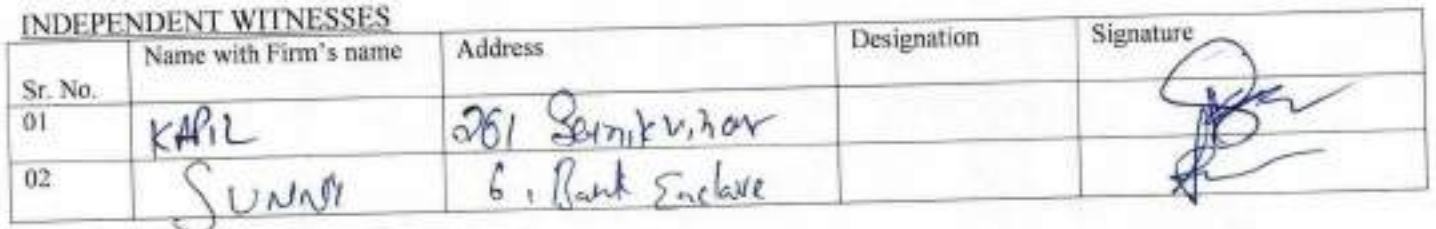 INDEPENDENT WITNESSES
Sr. No. Name with Firm's name Address Designation Signature
01 KAPIL 261 Sainik vihar
02 SUNNY 6, Bank Enclave